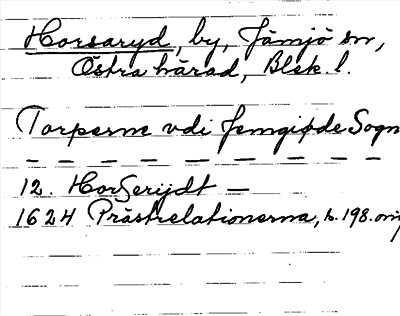 Horsaryd, by, Jämjö sn,
Östra härad, Blek. l.
Torperne vdi Jemgiøde Sogn
— — — — — — — —
12. Horserijdt —
1624 Prästrelationerna, s. 198. orig